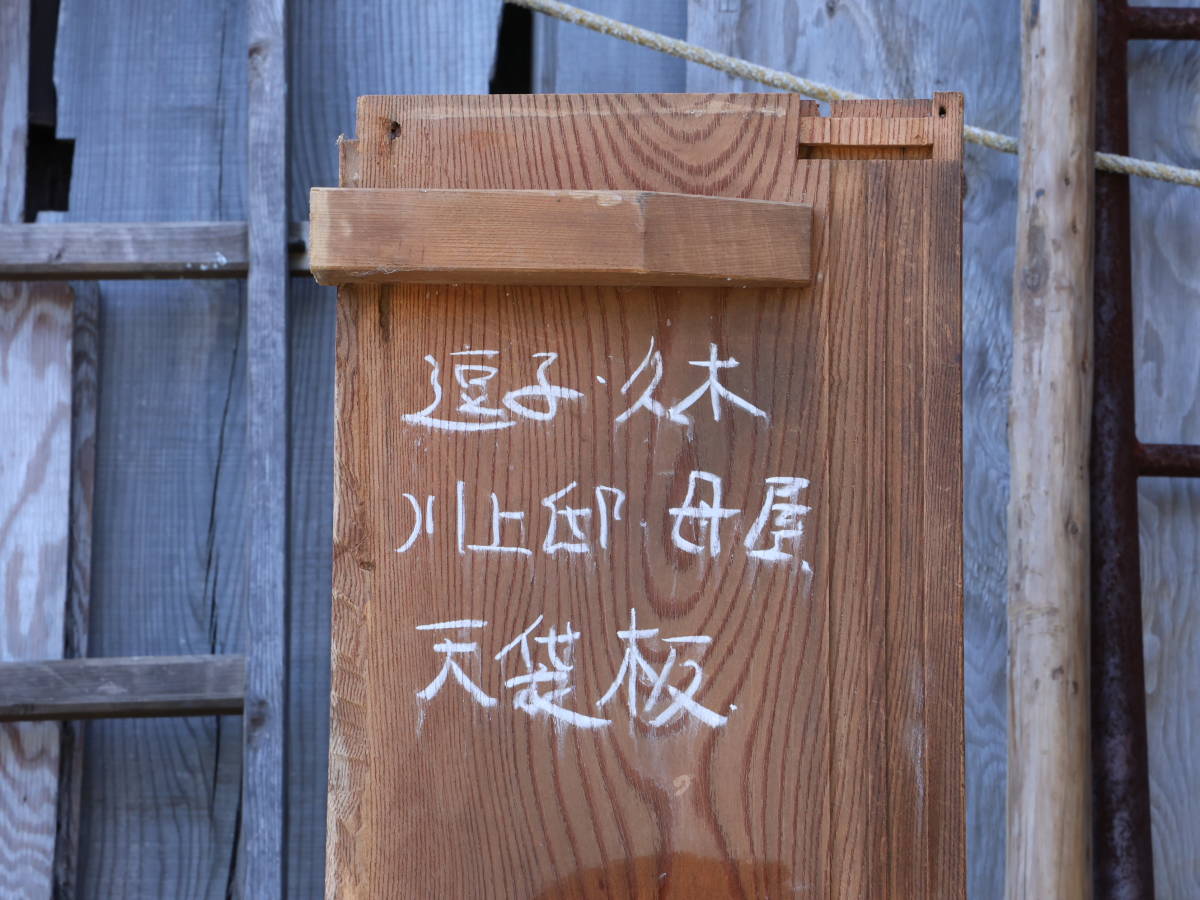 逗子・久木
川上邸 母屋
天袋板